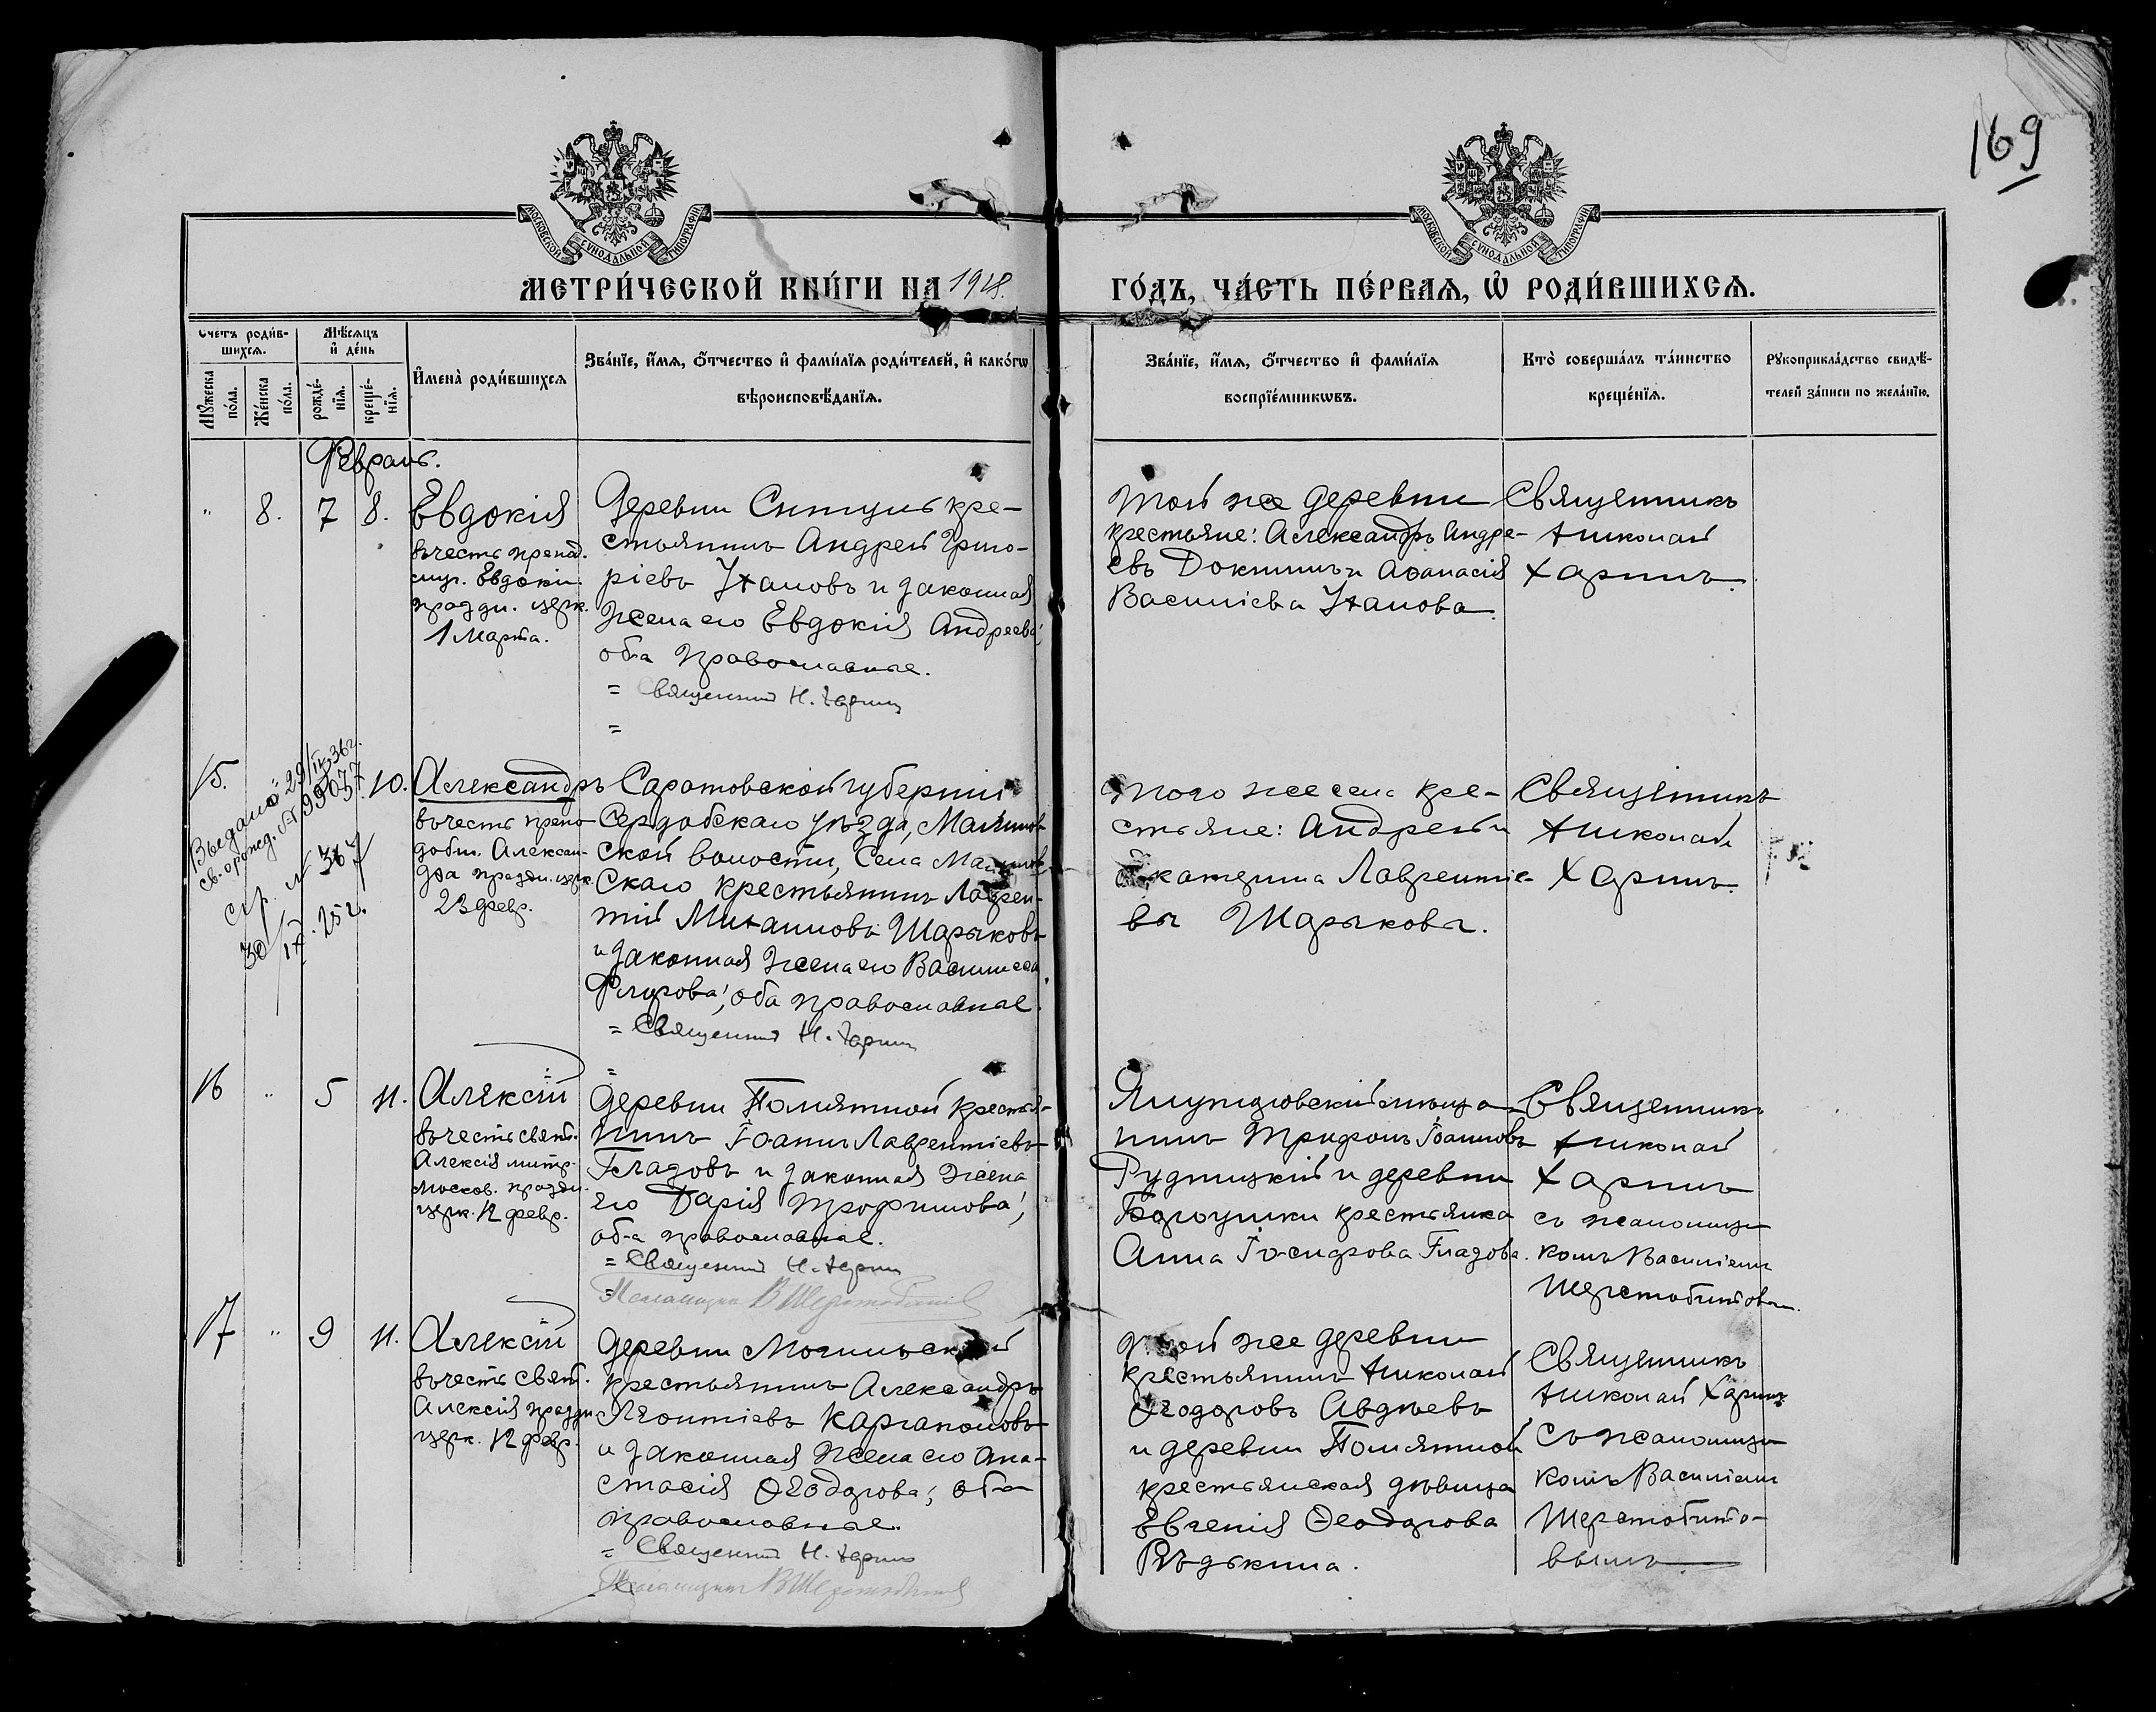 169
МОСКОВСКОЙ СУНОДАЛЬНОЙ ТИПОГРАФІИ
МОСКОВСКОЙ СУНОДАЛЬНОЙ ТИПОГРАФІИ
МЕТРИ́ЧЕСКОЙ КНИ́ГИ НА 1918.
ГО́ДЪ, ЧА́СТЬ ПЕ́РВАѦ, Ѡ҆ РОДИ́ВШИХСѦ.
Счетъ роди́в-
шихсѧ.
Мѣ́сѧцъ
и҆ де́нь
Мꙋ́жеска
по́ла.
Же́нска
по́ла.
рожде́-
нїѧ.
креще́-
нїѧ.
И҆мена̀ роди́вшихсѧ
Зва́нїе, и҆́мѧ, ѻ҆́тчество и҆ фами́лїѧ роди́телей, и҆ како́гѡ
вѣроисповѣ́данїѧ.
Зва́нїе, и҆́мѧ, ѻ҆́тчество и҆ фами́лїѧ
воспрїе́мникѡвъ.
Кто̀ соверша́лъ та́инство
креще́нїѧ.
Рꙋкоприкла́дство свидѣ́-
телей за́писи по жела́нїю.
Февраль.
" 8. 7 8.
Евдокія
въ честь препод.
муч. Евдокіи
праздн. церк.
1 Марта.
Деревни Ситуль кре-
стьянинъ Андрей Григо-
ріевъ Ухановъ и законная
жена его Евдокія Андреева;
оба православные.
= Священник Н. Харин
=
Той же деревни
крестьяне: Александръ Андре-
евъ Докинъ и Аѳанасія
Василіева Уханова.
Священникъ
Николай
Харинъ.
15. " 10.
Выдано 29/IV 36 г.
св. о рожд. № 99037
спр. № 367
30/IX. 25 г.
Александръ
въ честь препо-
добн. Алексан-
дра праздн. церк.
23 февр.
Саратовской губерніи
Сердобскаго уѣзда,
ской волости, Села
скаго крестьянинъ Лаврен-
тій Михаиловъ Шарыковъ
и законная жена его Василиса
оба православные.
= Священник Н. Харин
того же села кре-
стьяне: Андрей и
Екатерина Лаврентіе-
вы Шарыковы.
Священникъ
Николай
Харинъ.
16 " 5 11.
Алексій
въ честь свят.
Алексія митр.
москов. праздн.
церк. 12 февр.
=
Деревни Помятной крестья-
нинъ Іоаннъ Лаврентіевъ
Гладовъ и законная жена
его Дарія Трофимова;
оба православные.
= Священник Н. Харин
Псаломщик В Шерстобитов
Ялуторовскій мѣща-
нинъ Трифонъ Іоанновъ
Рудницкій и деревни
крестьянка
Анна Іосифова Гладова.
Священникъ
Николай
Харинъ
съ псаломщи-
комъ Василіемъ
Шерстобитовым.
17 " 9 11.
Алексій
въ честь свят.
Алексія праздн.
церк. 12 февр.
Деревни Могильской
крестьянинъ Александръ
Леонтіевъ Каргаполовъ
и законная жена его Ана-
стасія Ѳеодорова; оба
православные.
= Священник Н. Харин
Псаломщик В Шерстобитов
Той же деревни
крестьянинъ Николай
Ѳеодоровъ Авдѣевъ
и деревни Помятной
крестьянская дѣвица
Евгенія Ѳеодорова
Рѣдькина.
Священникъ
Николай Харинъ
съ псаломщи-
комъ Василіемъ
Шерстобито-
вымъ